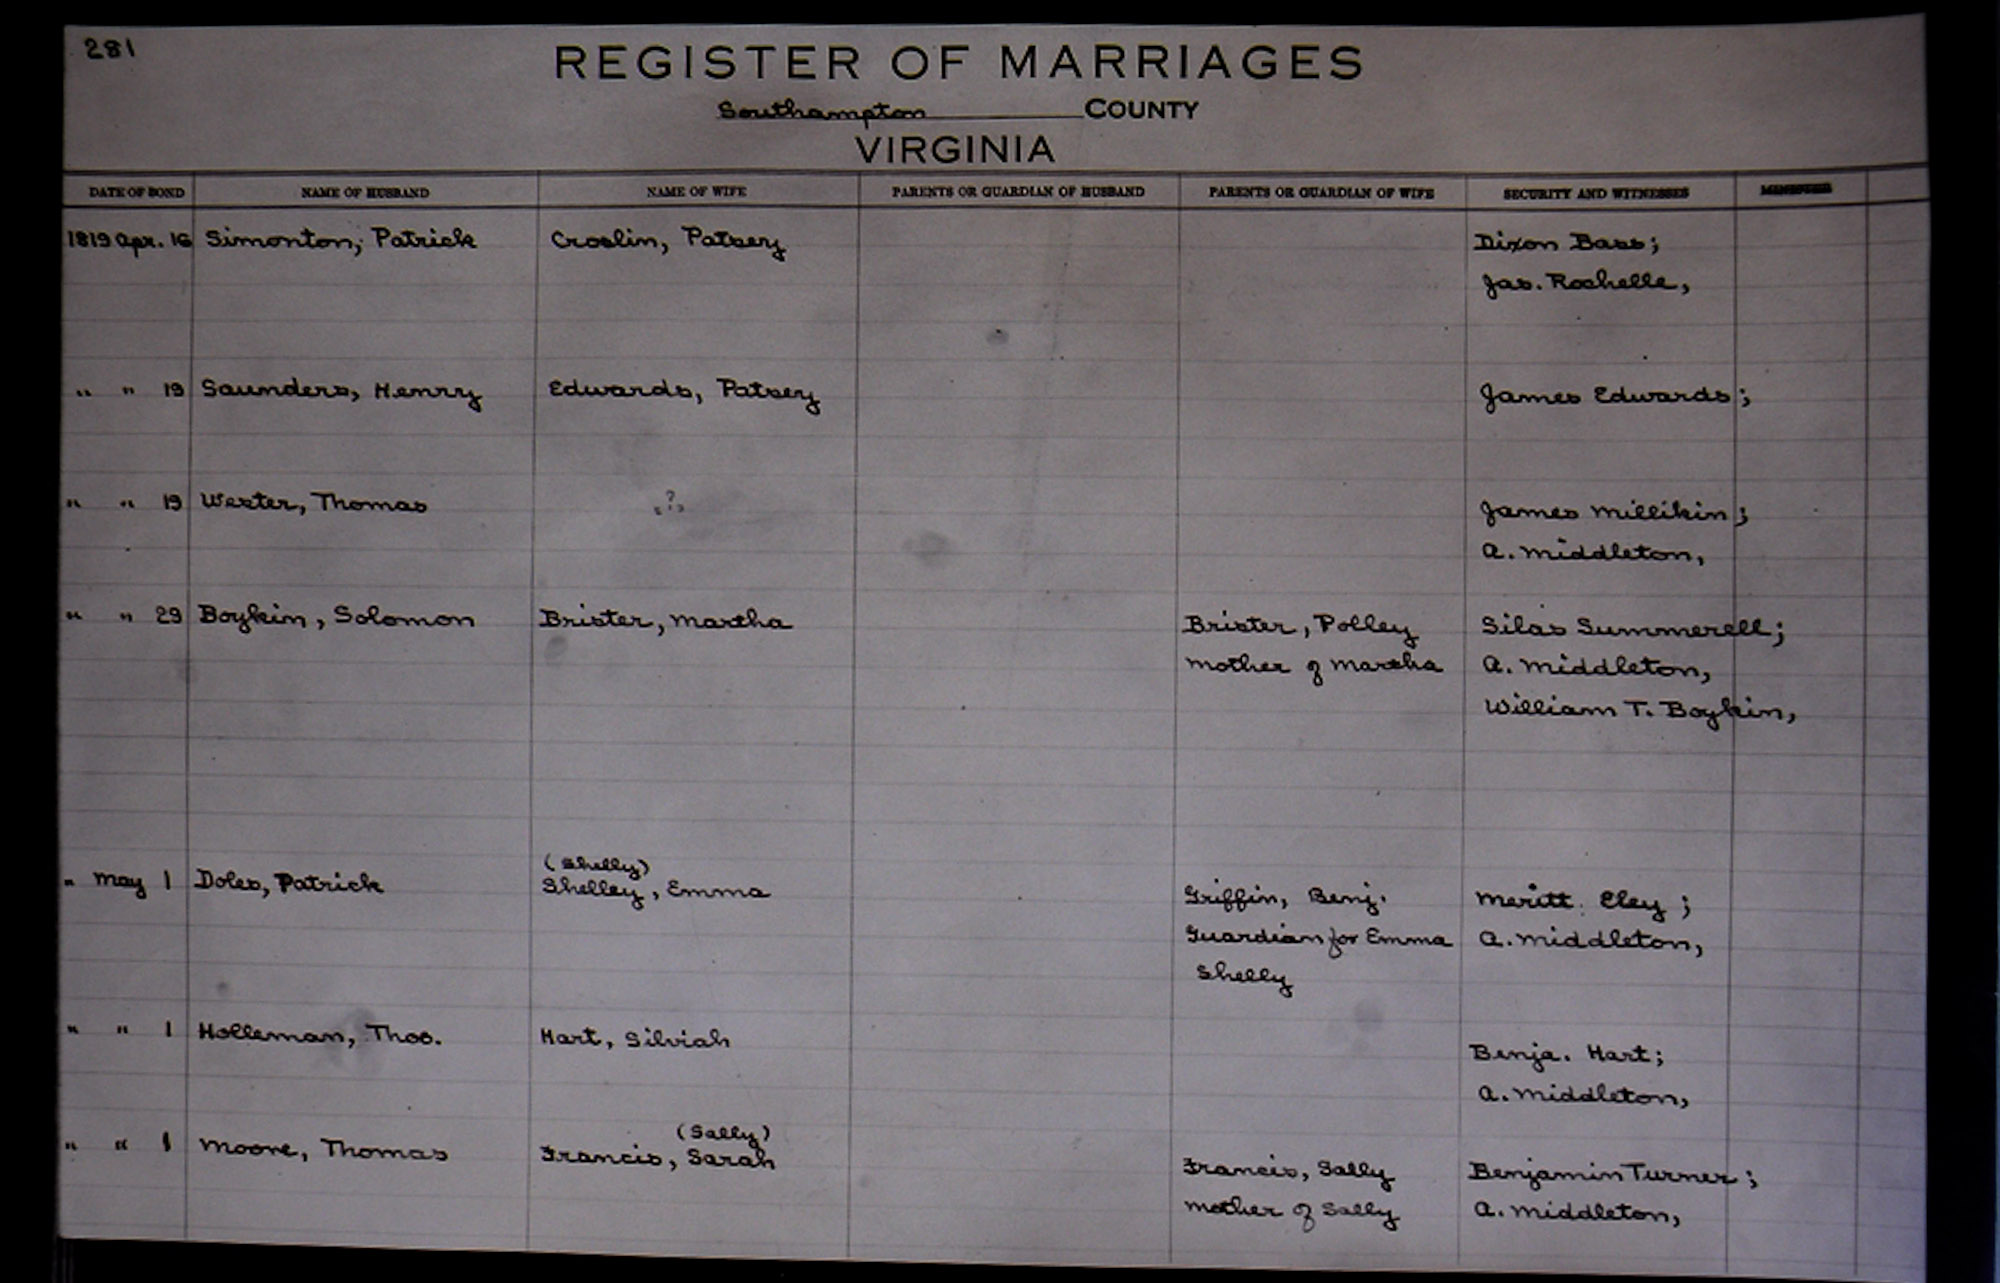 281
REGISTER OF MARRIAGES
Southampton COUNTY
VIRGINIA
DATE OF BOND NAME OF HUSBAND NAME OF WIFE PARENTS OR GUARDIAN OF HUSBAND PARENTS OR GUARDIAN OF WIFE SECURITY AND WITNESSES MINISTER
1819 Apr. 16 Simonton, Patrick Croslin, Patsey Dixon Bass;
Jas. Rochelle,
" " 19 Saunders, Henry Edwards, Patsey James Edwards;
" " 19 Wester, Thomas "?" James Millikin;
A. Middleton,
" " 29 Boykin, Solomon Brister, Martha Brister, Polley Silas Summerell;
mother of Martha A. Middleton,
William T. Boykin,
(Shelly)
" May 1 Doles, Patrick Shelley, Emma Griffin, Benj. Meritt Eley;
Guardian for Emma A. Middleton,
Shelly
" " 1 Holleman, Thos. Hart, Silviah Benja. Hart;
A. Middleton,
(Sally)
" " 1 Moore, Thomas Francis, Sarah Francis, Sally Benjamin Turner;
mother of Sally A. Middleton,